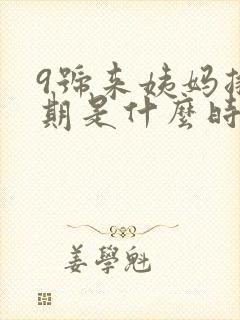 9號來姨妈排
期是什麼時
姜學魁